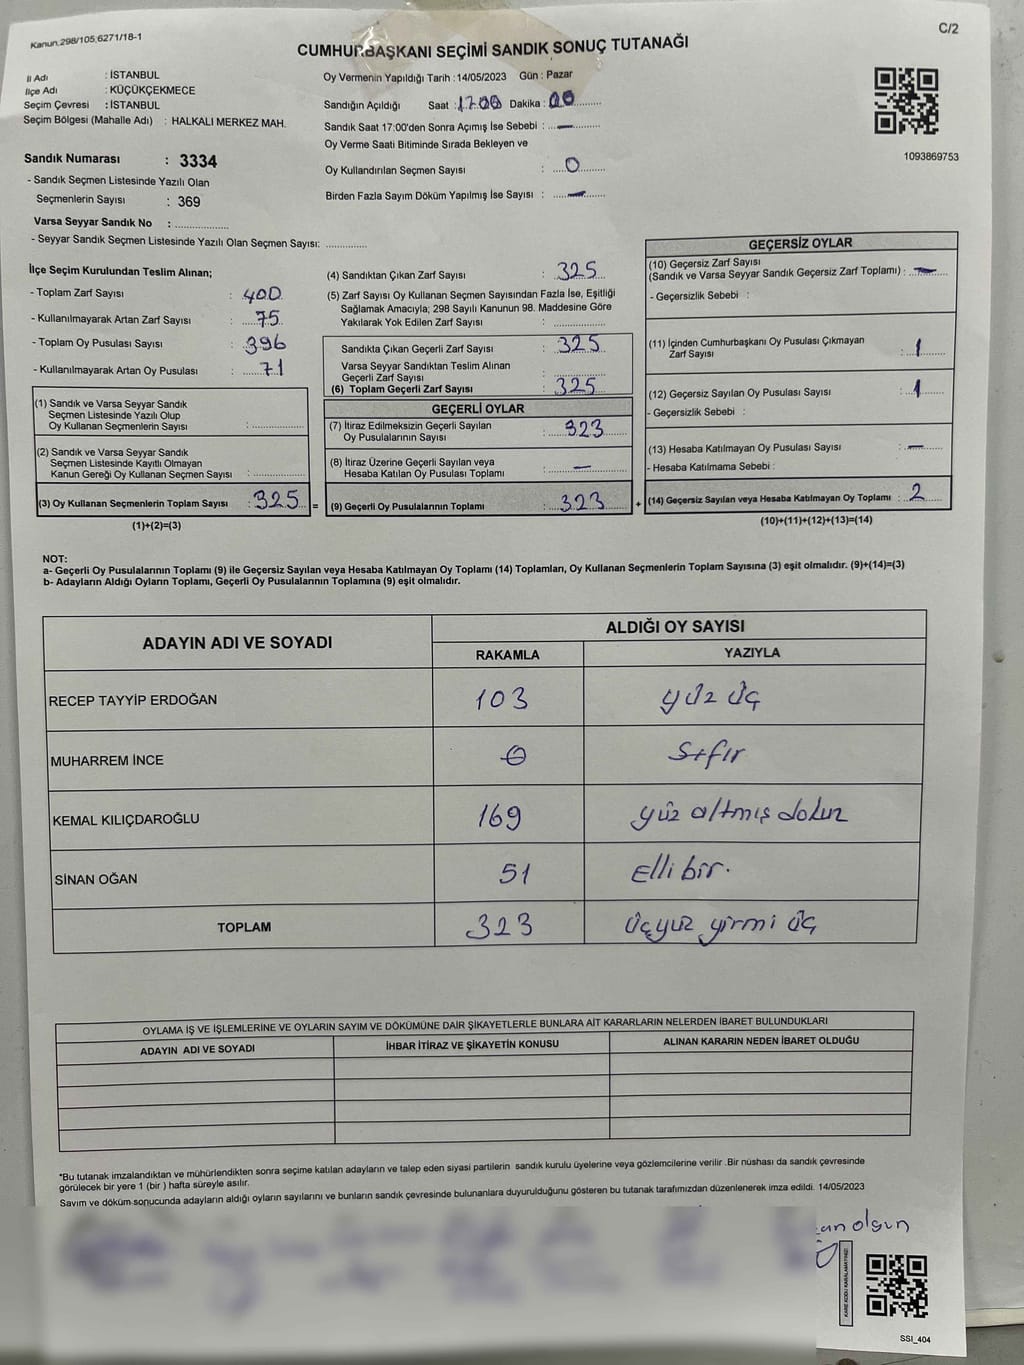 Kanun.298/105.6271/18-1
C/2
CUMHURBAŞKANI SEÇİMİ SANDIK SONUÇ TUTANAĞI
İl Adı : İSTANBUL
İlçe Adı : KÜÇÜKÇEKMECE
Seçim Çevresi : İSTANBUL
Seçim Bölgesi (Mahalle Adı) : HALKALI MERKEZ MAH.
Sandık Numarası : 3334
- Sandık Seçmen Listesinde Yazılı Olan
Seçmenlerin Sayısı : 369
Varsa Seyyar Sandık No : ..................
- Seyyar Sandık Seçmen Listesinde Yazılı Olan Seçmen Sayısı: ............
Oy Vermenin Yapıldığı Tarih : 14/05/2023 Gün : Pazar
Sandığın Açıldığı Saat : 17.00 Dakika : 00
Sandık Saat 17:00'den Sonra Açımış İse Sebebi : —
Oy Verme Saati Bitiminde Sırada Bekleyen ve
Oy Kullandırılan Seçmen Sayısı : 0
Birden Fazla Sayım Döküm Yapılmış İse Sayısı : —
1093869753
İlçe Seçim Kurulundan Teslim Alınan;
- Toplam Zarf Sayısı : 400
- Kullanılmayarak Artan Zarf Sayısı : 75
- Toplam Oy Pusulası Sayısı : 396
- Kullanılmayarak Artan Oy Pusulası : 71
(1) Sandık ve Varsa Seyyar Sandık
Seçmen Listesinde Yazılı Olup
Oy Kullanan Seçmenlerin Sayısı : ..............
(2) Sandık ve Varsa Seyyar Sandık
Seçmen Listesinde Kayıtlı Olmayan
Kanun Gereği Oy Kullanan Seçmen Sayısı : ..............
(3) Oy Kullanan Seçmenlerin Toplam Sayısı : 325 =
(1)+(2)=(3)
(4) Sandıktan Çıkan Zarf Sayısı : 325
(5) Zarf Sayısı Oy Kullanan Seçmen Sayısından Fazla İse, Eşitliği
Sağlamak Amacıyla; 298 Sayılı Kanunun 98. Maddesine Göre
Yakılarak Yok Edilen Zarf Sayısı : ..............
Sandıkta Çıkan Geçerli Zarf Sayısı : 325
Varsa Seyyar Sandıktan Teslim Alınan
Geçerli Zarf Sayısı : ..............
(6) Toplam Geçerli Zarf Sayısı : 325
GEÇERLİ OYLAR
(7) İtiraz Edilmeksizin Geçerli Sayılan
Oy Pusulalarının Sayısı : 323
(8) İtiraz Üzerine Geçerli Sayılan veya
Hesaba Katılan Oy Pusulası Toplamı : —
(9) Geçerli Oy Pusulalarının Toplamı : 323 +
GEÇERSİZ OYLAR
(10) Geçersiz Zarf Sayısı
(Sandık ve Varsa Seyyar Sandık Geçersiz Zarf Toplamı) : —
- Geçersizlik Sebebi :
(11) İçinden Cumhurbaşkanı Oy Pusulası Çıkmayan
Zarf Sayısı : 1
(12) Geçersiz Sayılan Oy Pusulası Sayısı : 1
- Geçersizlik Sebebi :
(13) Hesaba Katılmayan Oy Pusulası Sayısı : —
- Hesaba Katılmama Sebebi :
(14) Geçersiz Sayılan veya Hesaba Katılmayan Oy Toplamı : 2
(10)+(11)+(12)+(13)=(14)
NOT:
a- Geçerli Oy Pusulalarının Toplamı (9) ile Geçersiz Sayılan veya Hesaba Katılmayan Oy Toplamı (14) Toplamları, Oy Kullanan Seçmenlerin Toplam Sayısına (3) eşit olmalıdır. (9)+(14)=(3)
b- Adayların Aldığı Oyların Toplamı, Geçerli Oy Pusulalarının Toplamına (9) eşit olmalıdır.
ADAYIN ADI VE SOYADI ALDIĞI OY SAYISI
RAKAMLA YAZIYLA
RECEP TAYYİP ERDOĞAN 103 yüz üç
MUHARREM İNCE 0 sıfır
KEMAL KILIÇDAROĞLU 169 yüz altmış dokuz
SİNAN OĞAN 51 Elli bir.
TOPLAM 323 üçyüz yirmi üç
OYLAMA İŞ VE İŞLEMLERİNE VE OYLARIN SAYIM VE DÖKÜMÜNE DAİR ŞİKAYETLERLE BUNLARA AİT KARARLARIN NELERDEN İBARET BULUNDUKLARI
ADAYIN ADI VE SOYADI İHBAR İTİRAZ VE ŞİKAYETİN KONUSU ALINAN KARARIN NEDEN İBARET OLDUĞU
*Bu tutanak imzalandıktan ve mühürlendikten sonra seçime katılan adayların ve talep eden siyasi partilerin sandık kurulu üyelerine veya gözlemcilerine verilir .Bir nüshası da sandık çevresinde
görülecek bir yere 1 (bir ) hafta süreyle asılır.
Sayım ve döküm sonucunda adayların aldığı oyların sayılarını ve bunların sandık çevresinde bulunanlara duyurulduğunu gösteren bu tutanak tarafımızdan düzenlenerek imza edildi. 14/05/2023
olgun
KARE KODU KARALAMAYINIZ!
SSI_404